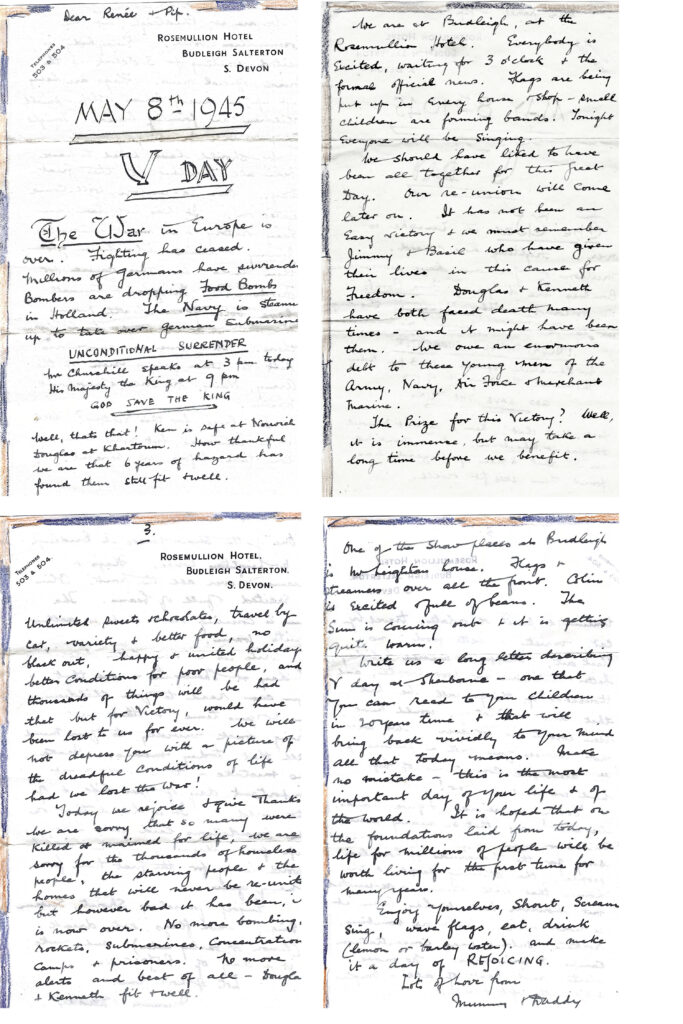 Dear Renée & Pip.
ROSEMULLION HOTEL
BUDLEIGH SALTERTON
S. DEVON
TELEPHONES
503 & 504
MAY 8th 1945
V DAY
The War in Europe is
over. Fighting has ceased.
Millions of Germans have surrende
Bombers are dropping Food Bombs
in Holland. The Navy is steami
up to take over German Submarin
UNCONDITIONAL SURRENDER
Mr Churchill speaks at 3 pm today
His Majesty the King at 9 pm
GOD SAVE THE KING
Well, thats that! Ken is safe at Norwich
Douglas at Khartoum. How thankful
we are that 6 years of hazard has
found them still fit & well.
We are at Budleigh, at the
Rosemullion Hotel. Everybody is
Excited, waiting for 3 o'clock & the
formal official news. Flags are being
put up in Every house & Shop - small
children are forming bands. Tonight
Everyone will be Singing.
We should have liked to have
been all together for this great
Day. Our re-union will come
later on. It has not been an
Easy victory & we must remember
Jimmy & Basil who have given
their lives in this cause for
Freedom. Douglas & Kenneth
have both faced death many
times - and it might have been
them. We owe an enormous
debt to these young men of the
Army, Navy, Air Force & Merchant
Marine.
The Prize for this Victory? Well,
it is immense, but may take a
long time before we benefit.
3.
TELEPHONES
503 & 504.
ROSEMULLION HOTEL,
BUDLEIGH SALTERTON.
S. DEVON.
Unlimited sweets & chocolates, travel by
car, variety & better food, no
black out, happy & united holiday
better conditions for poor people, and
thousands of things will be had
that but for Victory, would have
been lost to us for ever. We will
not depress you with a picture of
the dreadful conditions of life
had we lost the War!
Today we rejoice & give Thanks
we are sorry that so many were
Killed & maimed for life, we are
sorry for the thousands of homeless
people, the starving people & the
homes that will never be re-unite
but however bad it has been, i
is now over. No more bombing,
rockets, Submarines, Concentration
Camps & prisoners. No more
alerts and best of all - Dougla
& Kenneth fit & well.
One of the Show places at Budleigh
is house. Flags &
Streamers over all the front. Colin
is Excited & full of beans. The
Sun is coming out & it is getting
quite warm.
Write us a long letter describing
V day at Sherborne - one that
you can read to your Children
in 20 years time & that will
bring back vividly to your mind
all that today means. Make
no mistake - this is the most
important day of your life & of
the world. It is hoped that on
the foundations laid from today,
life for millions of people will be
worth living for the first time for
many years.
Enjoy yourselves, Shout, Scream
Sing, wave flags, eat, drink
(lemon or barley water). and make
it a day of REJOICING.
Lots of love from
Mummy & Daddy